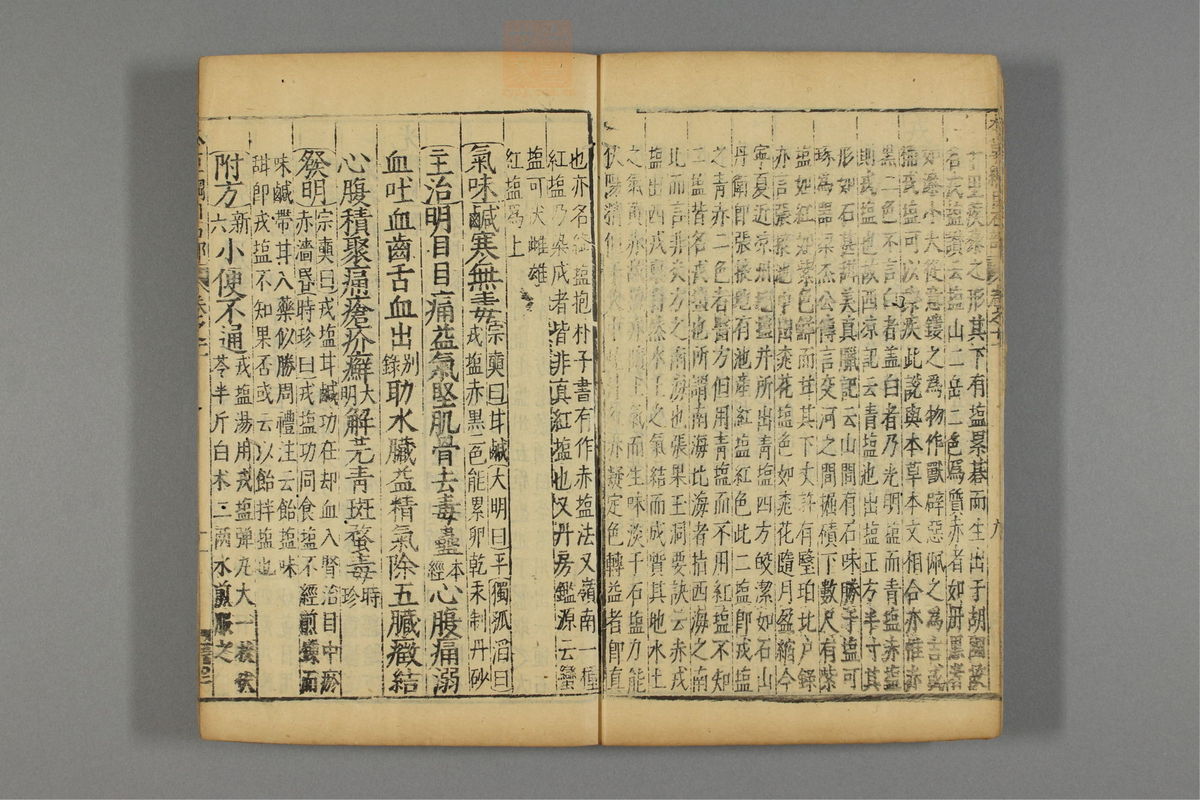 其下有塩累碁而生出于胡國故
名戎塩讚云塩山二岳二色爲質赤者如丹黒者
如漆小大從意鏤之爲物作獸辟惡佩之爲吉或
稱戎塩可以療疾此說與本草本文相合亦惟赤
黒二色不言白者蓋白者乃光明塩而青塩赤塩
則戎塩也故西凉記云青塩池出塩正方半寸其
形如石甚甜美真臘記云山間有石味勝于塩可
琢爲器梁杰公傳言交河之間掘磧下數尺有紫
塩如紅如紫色鮮而甘其下丈許有瑿珀北户錄
亦言張掖池中出桃花塩色如桃花隨月盈縮今
寧夏近凉州地塩井所出青塩四方皎潔如石山
丹衛即張掖地有池產紅塩紅色此二塩即戎塩
之青赤二色者醫方但用青塩而不用紅塩不知
二塩皆名戎塩也所謂南海北海者指西海之南
北而言非炎方之南海也張果玉洞要訣云赤戎
塩出西戎稟自然水土之氣結而成質其地水土
之氣黄赤故塩亦隨土氣而生味淡于石塩力能
伏陽精
也亦名絳塩抱朴子書有作赤塩法又嶺南一種
紅塩乃染成者皆非真紅塩也又丹房鑑源云蠻
塩可伏雌雄
紅塩爲上
氣味鹹寒無毒宗奭曰甘鹹大明曰平獨孤滔曰
戎塩赤黒二色能累卵乾汞制丹砂
主治明目目痛益氣堅肌骨去毒蠱本經心腹痛溺
血吐血齒舌血出別錄助水臟益精氣除五臟癥結
心腹積聚痛瘡疥癬大明解芫青斑蝥毒時珍
發明宗奭曰戎塩甘鹹功在却血入腎治目中瘀
赤濇昏時珍曰戎塩功同食塩不經煎鍊而
味鹹帶甘入藥似勝周禮注云飴塩味
甜即戎塩不知果否或云以飴拌塩也
附方新六小便不通戎塩湯用戎塩彈丸大一枚茯
苓半斤白术二兩水煎服之